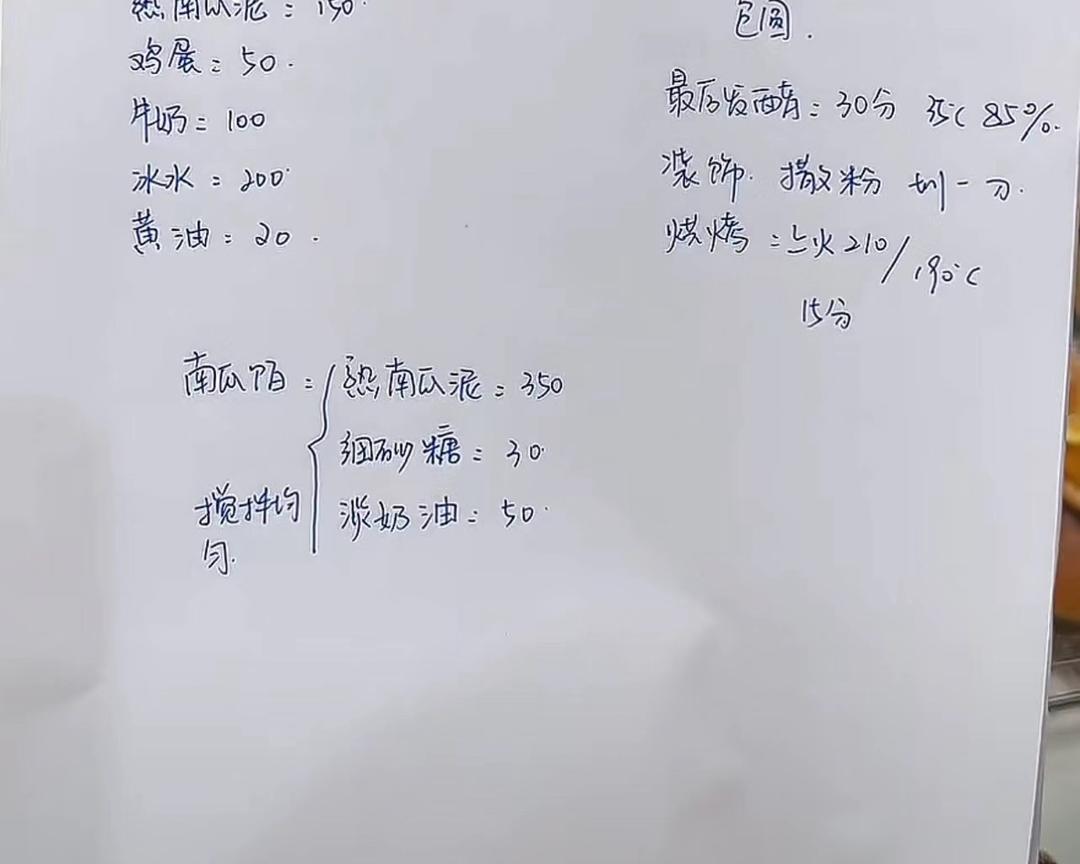 熟南瓜泥：150.
鸡蛋：50.
牛奶：100
冰水：200.
黄油：20.
包圆.
最后发酵：30分 35℃ 85%.
装饰. 撒粉 划一刀.
烘烤：上火210/190℃
15分
南瓜馅：
熟南瓜泥：350
细砂糖：30.
淡奶油：50.
搅拌均
匀.